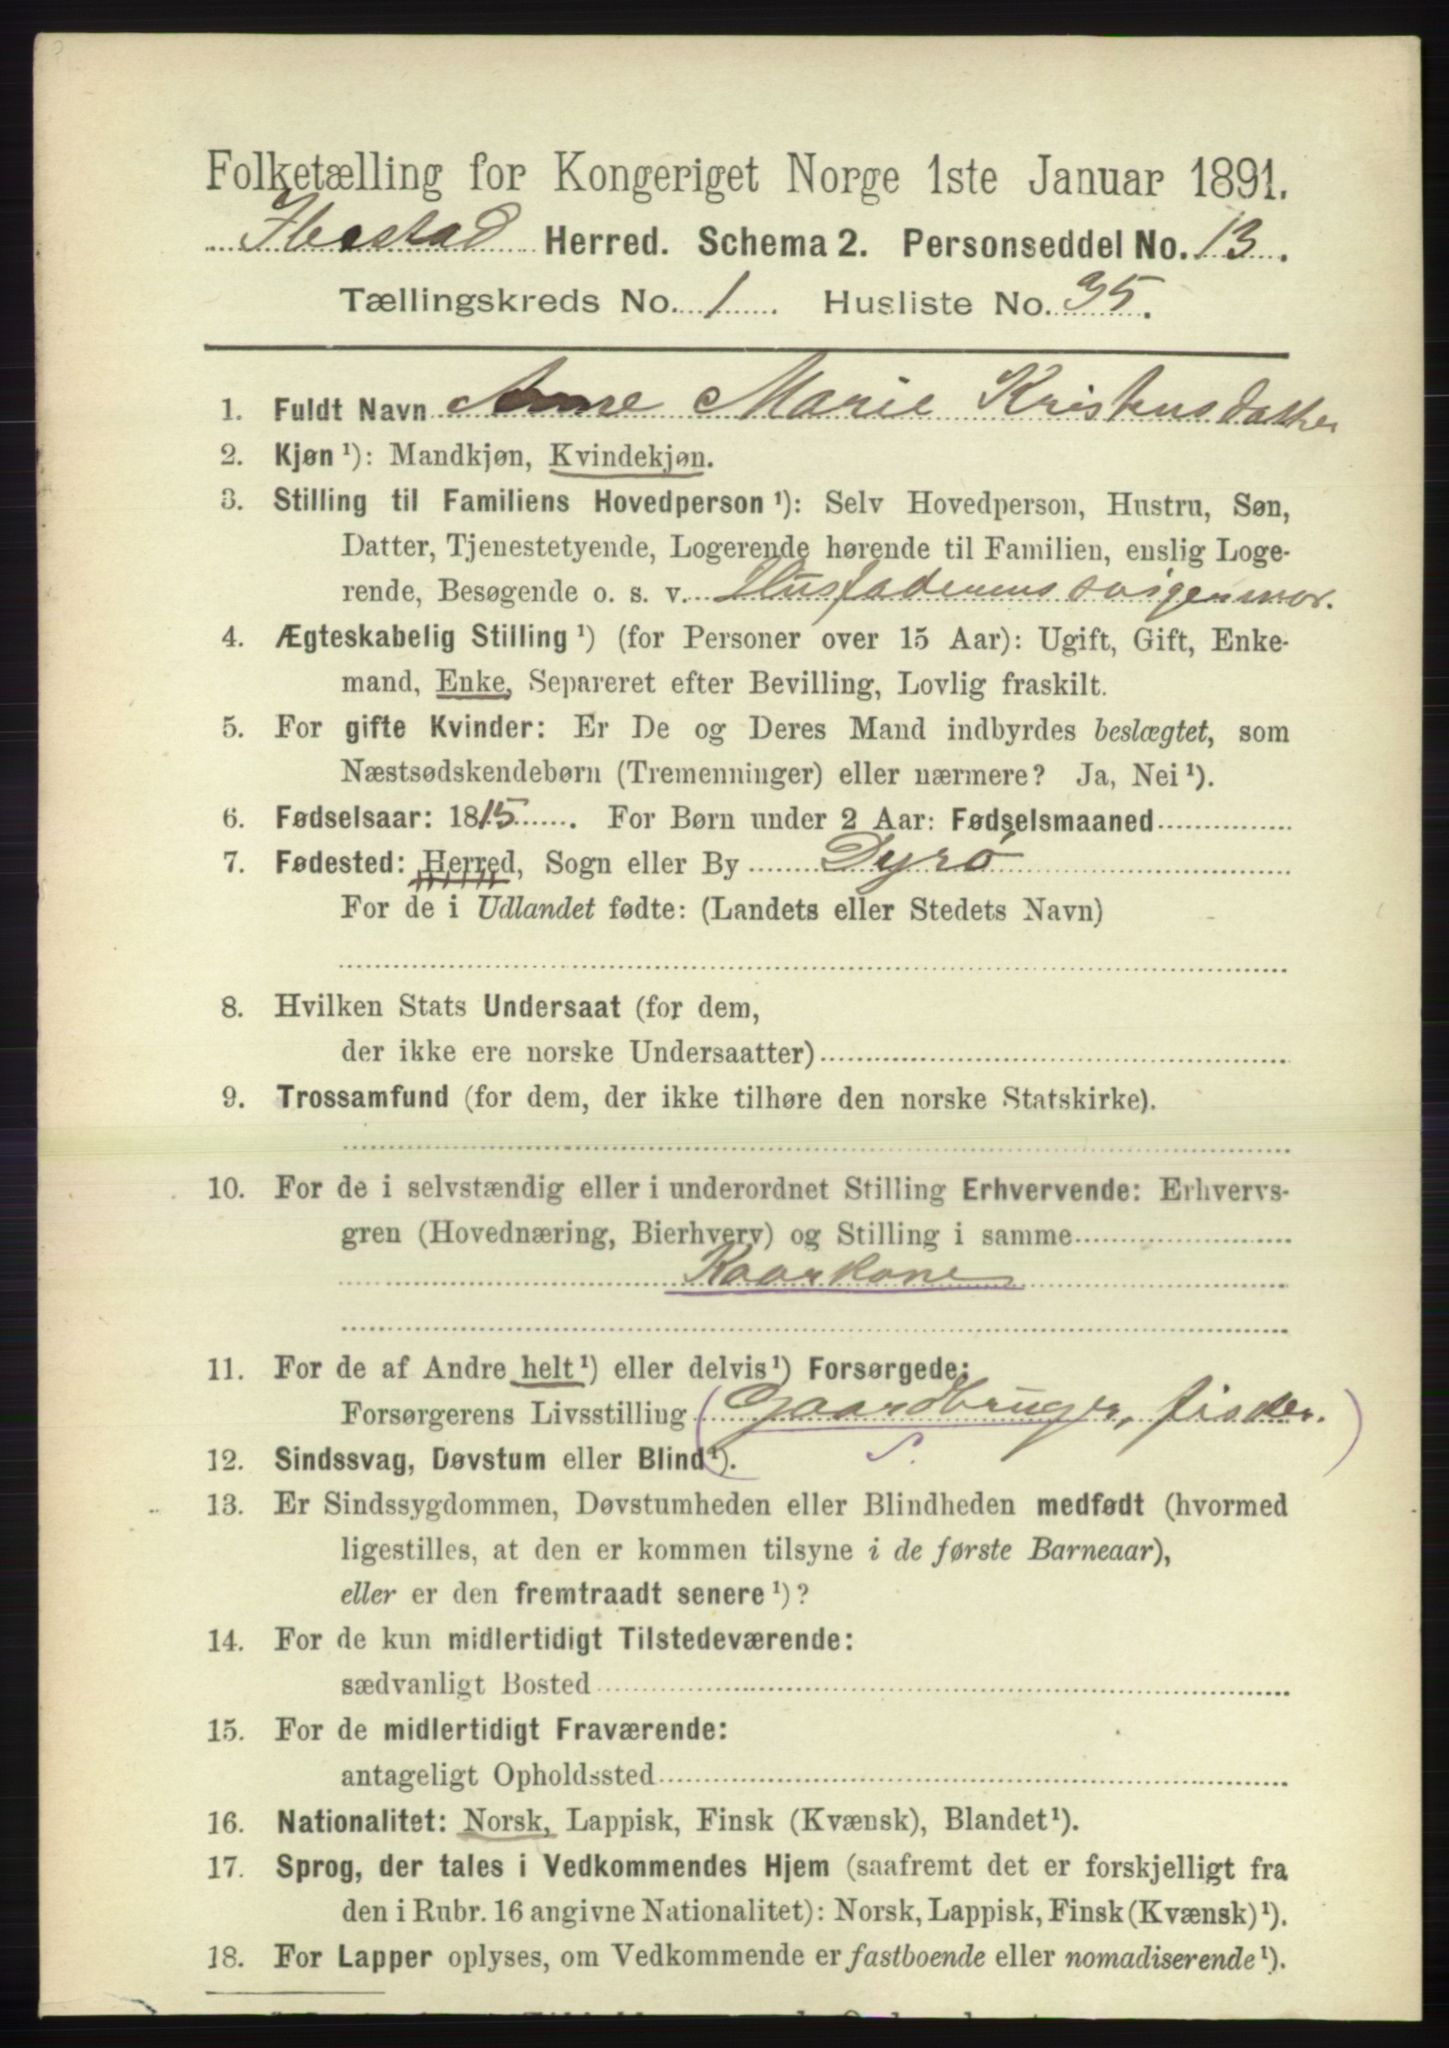 Folketælling for Kongeriget Norge 1ste Januar 1891.
Ibestad Herred. Schema 2. Personseddel No. 13.
Tællingskreds No. 1 Husliste No. 35.
1. Fuldt Navn Anne Marie Kristensdatter
2. Kjøn ¹): Mandkjøn, Kvindekjøn.
3. Stilling til Familiens Hovedperson ¹): Selv Hovedperson, Hustru, Søn,
Datter, Tjenestetyende, Logerende hørende til Familien, enslig Loge-
rende, Besøgende o. s. v. Husfaderens svigermor.
4. Ægteskabelig Stilling ¹) (for Personer over 15 Aar): Ugift, Gift, Enke-
mand, Enke, Separeret efter Bevilling, Lovlig fraskilt.
5. For gifte Kvinder: Er De og Deres Mand indbyrdes beslægtet, som
Næstsødskendebørn (Tremenninger) eller nærmere? Ja, Nei ¹).
6. Fødselsaar: 1815. For Børn under 2 Aar: Fødselsmaaned
7. Fødested: Herred, Sogn eller By Dyrö
For de i Udlandet fødte: (Landets eller Stedets Navn)
8. Hvilken Stats Undersaat (for dem,
der ikke ere norske Undersaatter)
9. Trossamfund (for dem, der ikke tilhøre den norske Statskirke).
10. For de i selvstændig eller i underordnet Stilling Erhvervende: Erhvervs-
gren (Hovednæring, Bierhverv) og Stilling i samme
Kaarkone
11. For de af Andre helt ¹) eller delvis ¹) Forsørgede:
Forsørgerens Livsstilling (Gaardbruger, fisker.)
S.
12. Sindssvag, Døvstum eller Blind ¹).
13. Er Sindssygdommen, Døvstumheden eller Blindheden medfødt (hvormed
ligestilles, at den er kommen tilsyne i de første Barneaar),
eller er den fremtraadt senere ¹)?
14. For de kun midlertidigt Tilstedeværende:
sædvanligt Bosted
15. For de midlertidigt Fraværende:
antageligt Opholdssted
16. Nationalitet: Norsk, Lappisk, Finsk (Kvænsk), Blandet ¹).
17. Sprog, der tales i Vedkommendes Hjem (saafremt det er forskjelligt fra
den i Rubr. 16 angivne Nationalitet): Norsk, Lappisk, Finsk (Kvænsk) ¹).
18. For Lapper oplyses, om Vedkommende er fastboende eller nomadiserende ¹).